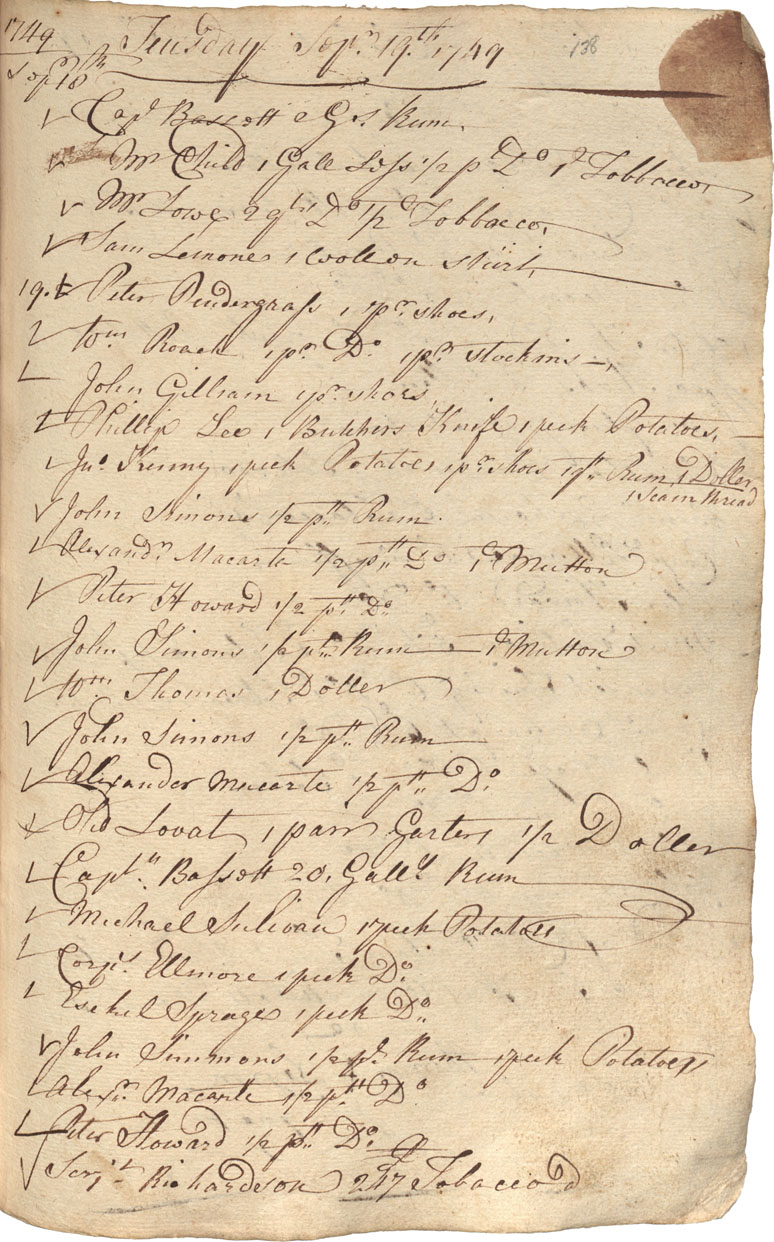 1749 Teusday Sepr. 19th. 1749 138
Sepr 18th
Capt Bassett 2 Gs. Rum,
Mr Child 1 Gall Loss 1/2 pt Do 1d Tobbacco,
Mr Lowe 2 qts Do 1/2 d Tobbacco,
Sam Lemones 1 woollon shiirt,
19. Peter Pendergrass 1 pr shoes,
Wm Roach 1 pr Do. 1 pr stockins—,
John Gilliam 1 pr shoes,
Phillip Lee 1 Buthers Knife 1 peck Potatoes,
Jno. Kenny 1 peck Potatoes 1 pr shoes 1 Rum, 1 Doller,
1 Scain thread
John Simons 1/2 pt Rum.
Alexandr. Macarte 1/2 pt Do 1d Mutton
Peter Howard 1/2 pt Do
John Simons 1/2 pt Rum — 1d Mutton
Wm Thomas 1 Doller
John Simons 1/2 pt Rum
Alexander Macarte 1/2 pt Do.
Old Lovat 1 parr Garters 1/2 Doller
Captn Bassett 20, Galls Rum
Michael Sulivan 1 peck Potatoes
Corpl. Ellmore 1 peck Do.
Esekel Sprage 1 peck Do
John Simmons 1/2 pt. Rum 1 peck Potatoes
Alexr. Macarte 1/2 pt Do
Peter Howard 1/2 pt Do.
Serjt. Richardson Tobacco